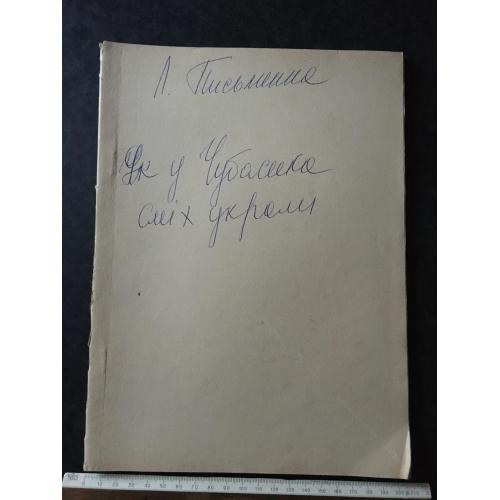 Л. Письменна
Як у Чубасика
сміх украли